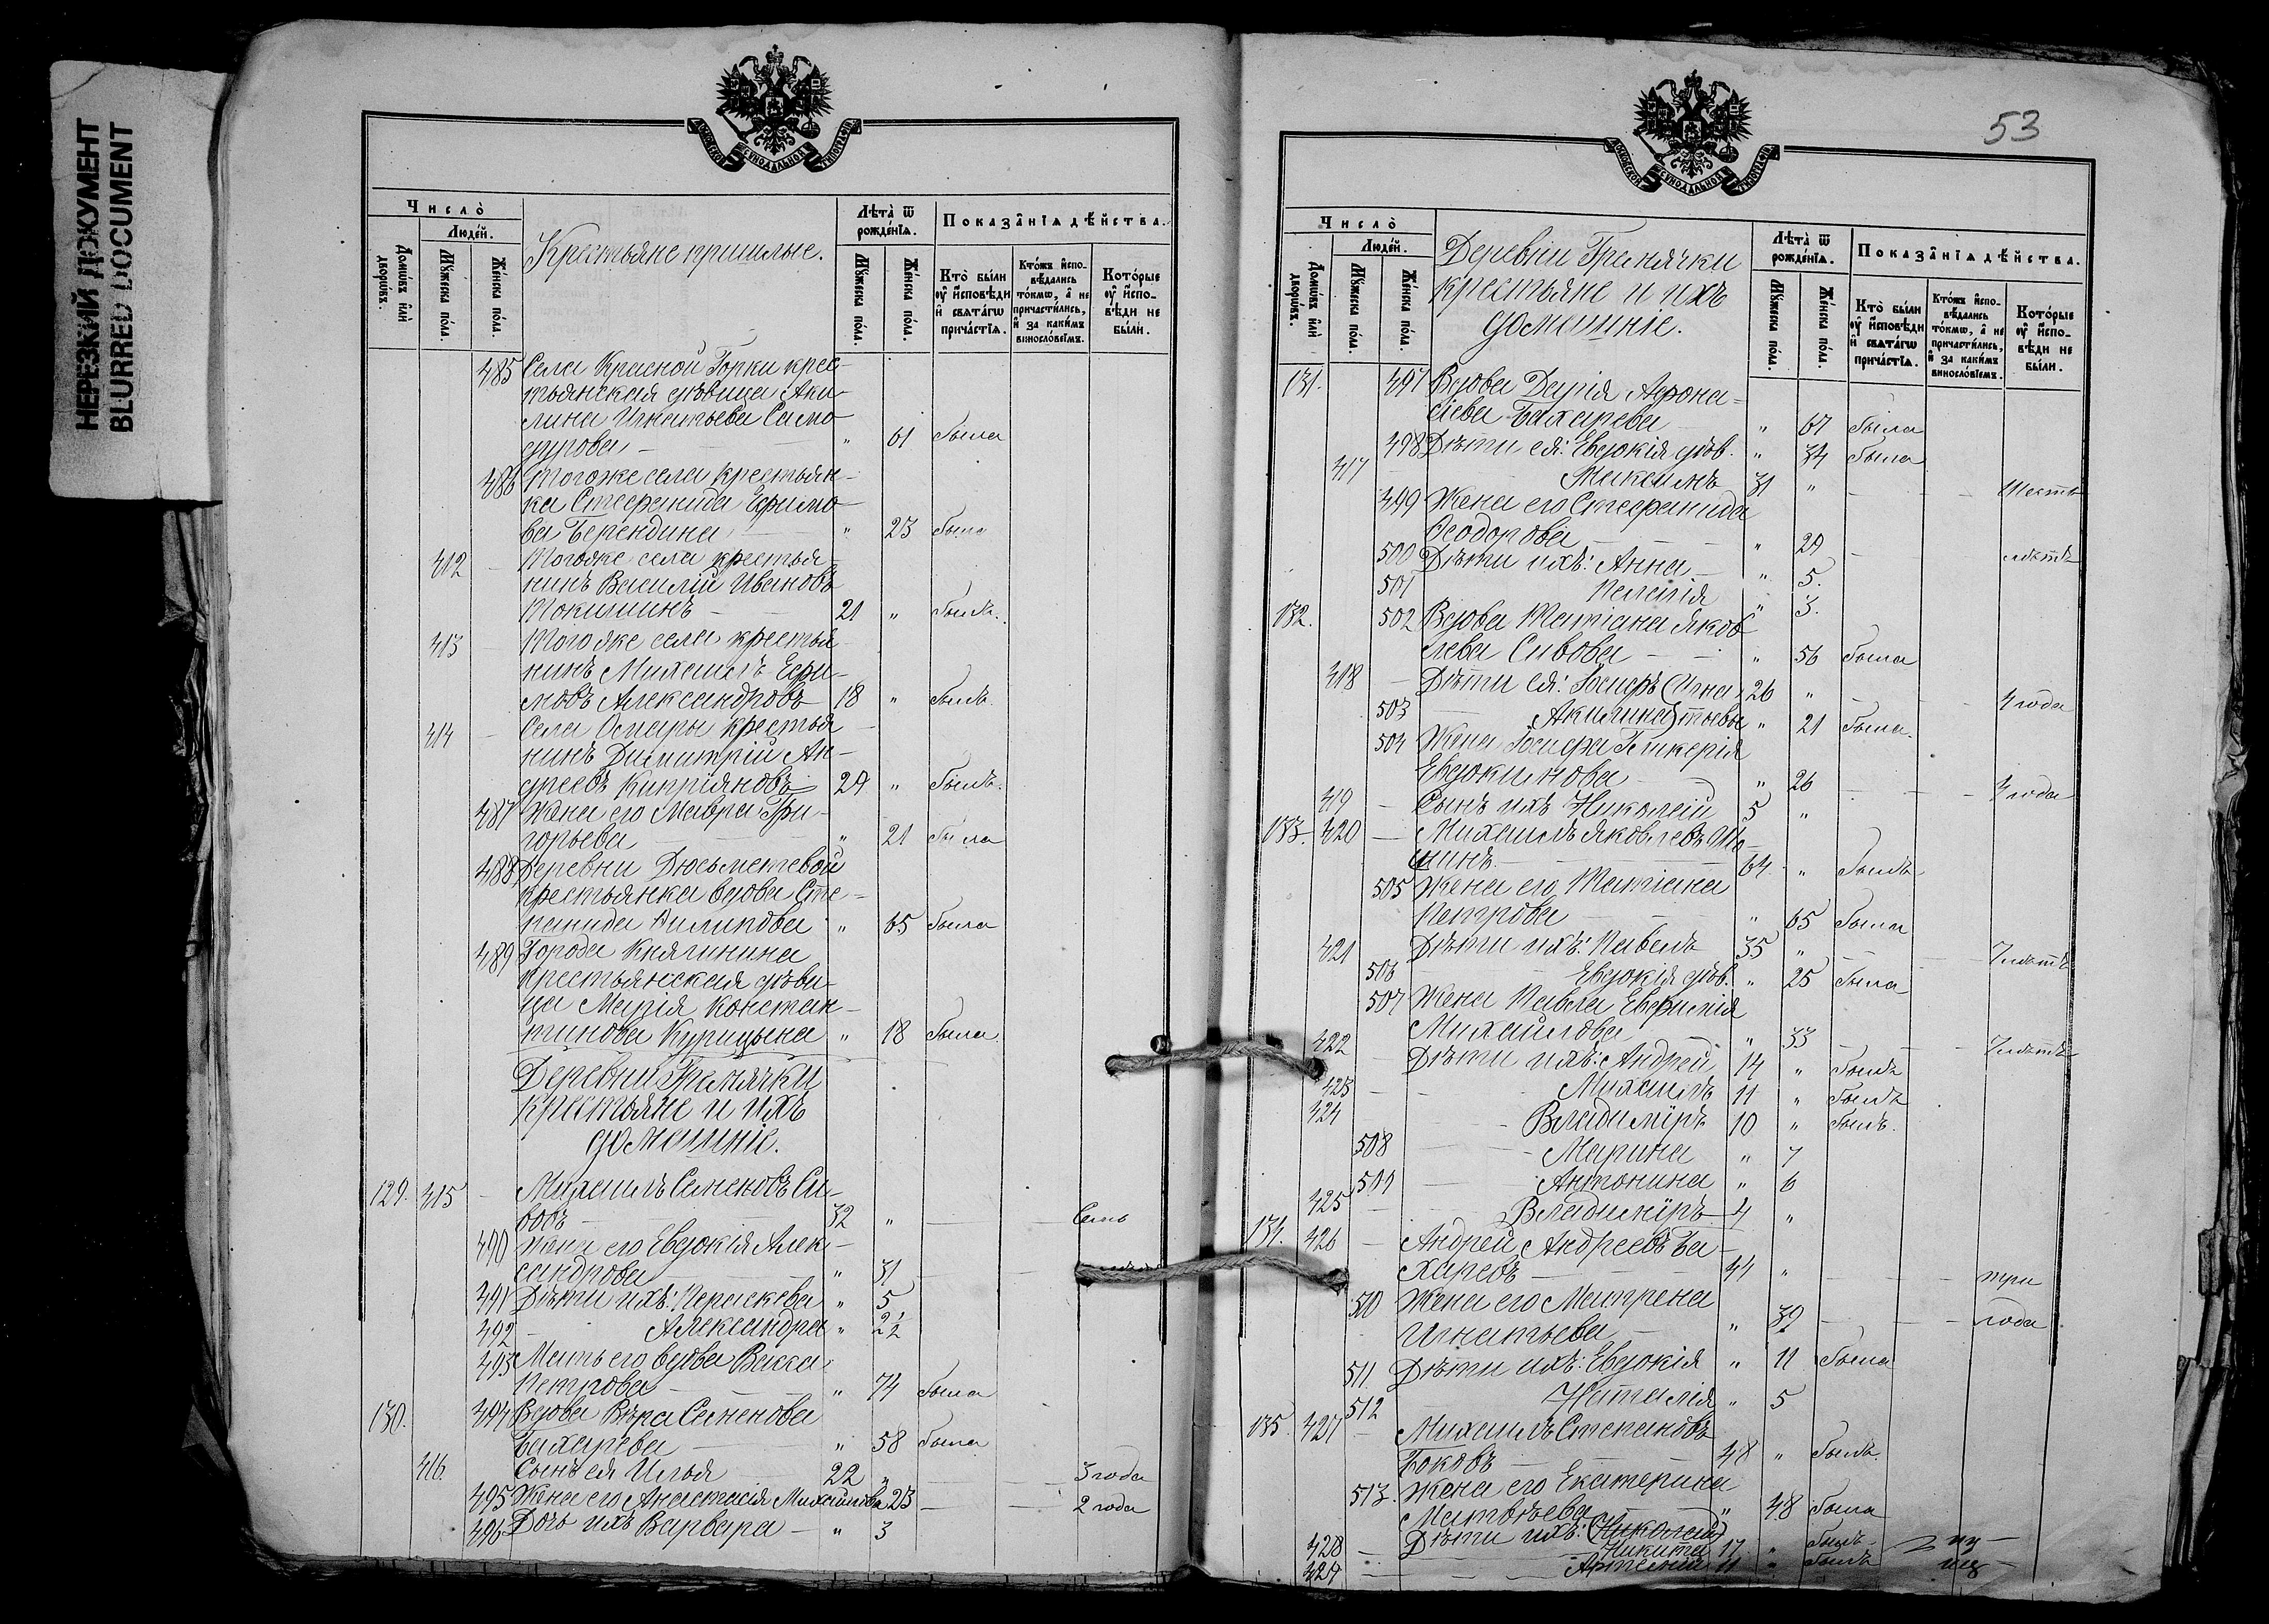 НЕРЕЗКИЙ ДОКУМЕНТ
BLURRED DOCUMENT
МОСКОВСКОЙ СѴНОДАЛЬНОЙ ТИПОГРАФІИ
Число̀
Людей.
Домѡвъ или дворѡвъ.
Мꙋжеска пола.
Женска пола.
Крестьяне пришлые.
Лѣта ѿ рожденїѧ.
Мꙋжеска пола.
Женска пола.
Показанїѧ дѣйства.
Кто были оу исповѣди и свѧтагѡ причастїѧ.
Ктожъ исповѣдались токмѡ, а не причастились, и за какимъ винословїемъ.
Которые оу исповѣди не были.
485 Села Красной Горки крес-
тьянская дѣвица Аки-
лина Игнатьева Само-
дурова — " 61 была
486 Тогоже села крестьян-
ка Стефанида Ефимо-
ва Берендина — " 23 была
412 — Тогоже села крестья-
нинъ Василій Ивановъ
Токишинъ — 21 " былъ.
413 — Тогоже села крестья-
нинъ Михаилъ Ефи-
мовъ Александровъ 18 " былъ.
414 — Села Осмары крестья-
нинъ Димитрій Ан-
дреевъ Кипріяновъ 24 " былъ.
487 Жена его Мавра Гри-
горьева — " 21 была
488 Деревни Дюсьметевой
крестьянка вдова Сте-
панида Филипова " 65 была
489 Города Княгинина
крестьянская дѣви-
ца Марія Констан-
тинова Курицына " 18 была.
Деревни Гремячки
крестьяне и ихъ
домашніе.
129. 415 — Михаилъ Семеновъ Си-
вовъ — 32 " — — Семь
490 Жена его Евдокія Алек-
сандрова — " 31 — —
491 Дѣти ихъ: Параскева " 5
492 — Александра " 2½
493 Мать его вдова Васса
Петрова — " 74 была
130. 494 Вдова Вѣра Семенова
Бахарева — " 58 была
416. Сынъ ея Илья 22 " — — 3 года
495 Жена его Анастасія Михайлова 23 — — 2 года
496 Дочь ихъ Варвара — " 3
53
МОСКОВСКОЙ СѴНОДАЛЬНОЙ ТИПОГРАФІИ
Число̀
Людей.
Домѡвъ или дворѡвъ.
Мꙋжеска пола.
Женска пола.
Деревни Гремячки
крестьяне и ихъ
домашніе.
Лѣта ѿ рожденїѧ.
Мꙋжеска пола.
Женска пола.
Показанїѧ дѣйства.
Кто были оу исповѣди и свѧтагѡ причастїѧ.
Ктожъ исповѣдались токмѡ, а не причастились, и за какимъ винословїемъ.
Которые оу исповѣди не были.
131. 497 Вдова Дарія Афона-
сіева Бахарева " 67 была
498 Дѣти ея: Евдокія дѣв. " 34 была
417 — Максимъ 31 " — — Шесть
499 Жена его Стефанида
Ѳеодорова — " 29 — лѣтъ
500 Дѣти ихъ: Анна — " 5.
501 Пелагія " 3.
132. 502 Вдова Татіана Яков-
лева Сивова — " 56 была
418 — Дѣти ея: Іосифъ (Игна- 26 " — — 4 года
503 — Акилина) тьевы " 21 была.
504 Жена Іосифа Гликерія
Евдокимова — " 26 — — 4 года
419 — Сынъ ихъ Николай 5 "
133. 420 — Михаилъ Яковлевъ
шинъ — 64. " былъ
505 Жена его Татіана
Петрова — " 65 была
421 Дѣти ихъ: Павелъ 35 " — — 7 лѣтъ
506 — Евдокія дѣв. " 25 была
507 Жена Павла Евфимія
Михайлова — " 33 — — 7 лѣтъ
422 — Дѣти ихъ: Андрей 14 " былъ
423 — Михаилъ 11 " былъ
424 — Владиміръ 10 " былъ.
508 — Марина " 7
509 — Антонина " 6
425 — Владиміръ 4 "
134. 426 — Андрей Андреевъ Ба-
харевъ — 44 " — — три
510 Жена его Матрена
Игнатьева — " 39 — — года
511. Дѣти ихъ: Евдокія " 11 была
512 Наталія " 5
135. 427 — Михаилъ Степановъ
Боковъ — 48 " былъ.
513. Жена его Екатерина
Матвѣева — " 48 была
Дѣти ихъ: (Николай)
428 — Никита 17 " былъ
429 — Артемій 11 " былъ